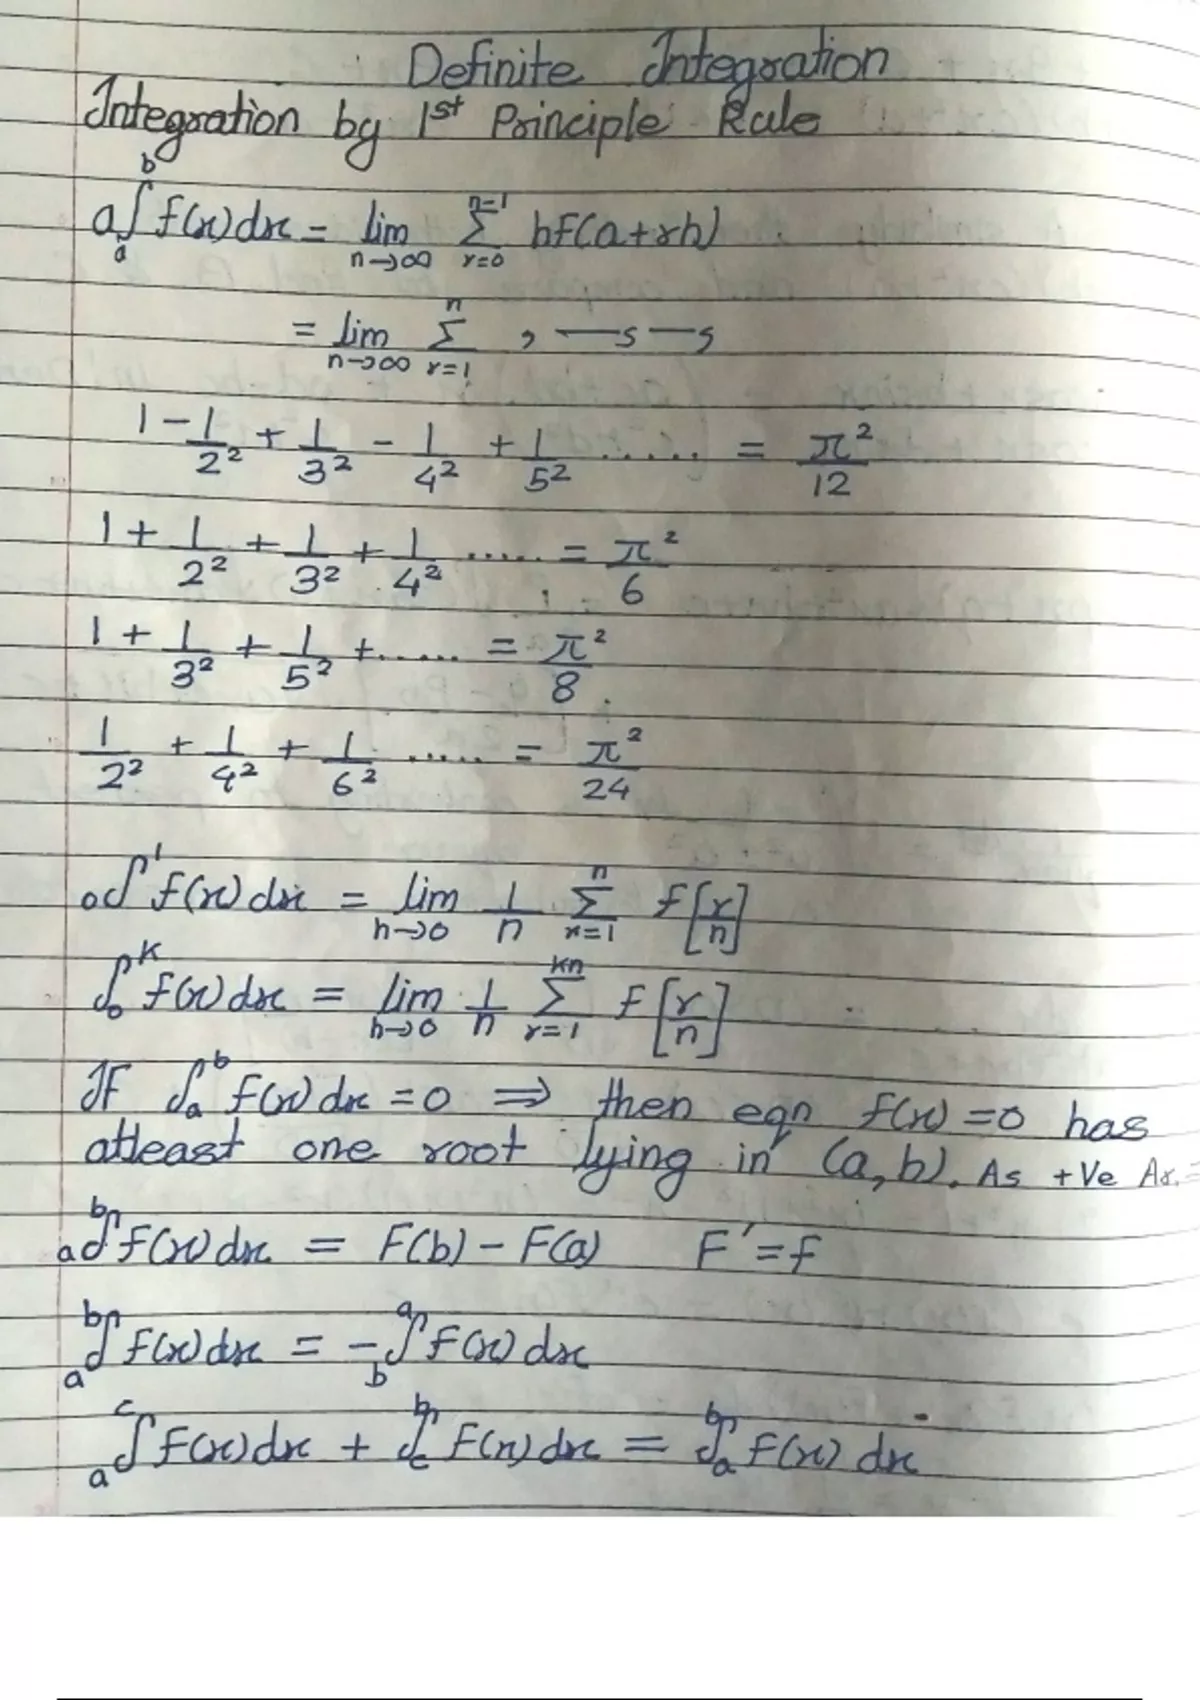 Definite Integration
Integration by 1st Principle Rule
a∫_a^b f(x)dx = lim_{n→∞} Σ_{r=0}^{n-1} hf(a+rh)
= lim_{n→∞} Σ_{r=1}^{n} , —s —s
1 - 1/2² + 1/3² - 1/4² + 1/5² ..... = π²/12
1 + 1/2² + 1/3² + 1/4² ..... = π²/6
1 + 1/3² + 1/5² + ..... = π²/8
1/2² + 1/4² + 1/6² ..... = π²/24
∫_0^1 f(x)dx = lim_{h→0} 1/n Σ_{r=1}^{n} f[r/n]
∫_0^K f(x)dx = lim_{h→0} 1/n Σ_{r=1}^{Kn} f[r/n]
If ∫_a^b f(x)dx = 0 ⇒ then eqn f(x) = 0 has
atleast one root lying in (a, b). As +Ve Ar. =
∫_a^b f(x)dx = F(b) - F(a) F' = f
∫_a^b f(x)dx = -∫_b^a f(x)dx
∫_a^c f(x)dx + ∫_c^b f(x)dx = ∫_a^b f(x)dx